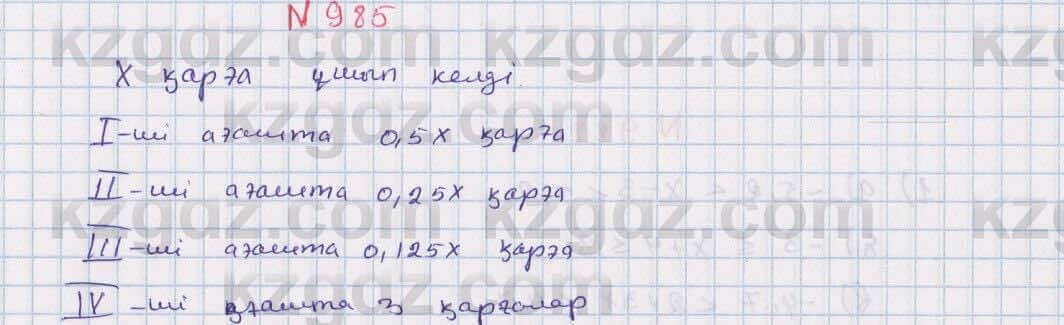 N 985
kzgdz.com kzgdz.com kz
X қарға ұшып келді.
kzgdz.com
I-ші ағашта 0,5x қарға
II-ші ағашта 0,25x қарға
kzgdz.com kzgdz.com kz
III-ші ағашта 0,125x қарға
IV-ші ағашта 3 қарғалар
kzgdz.com